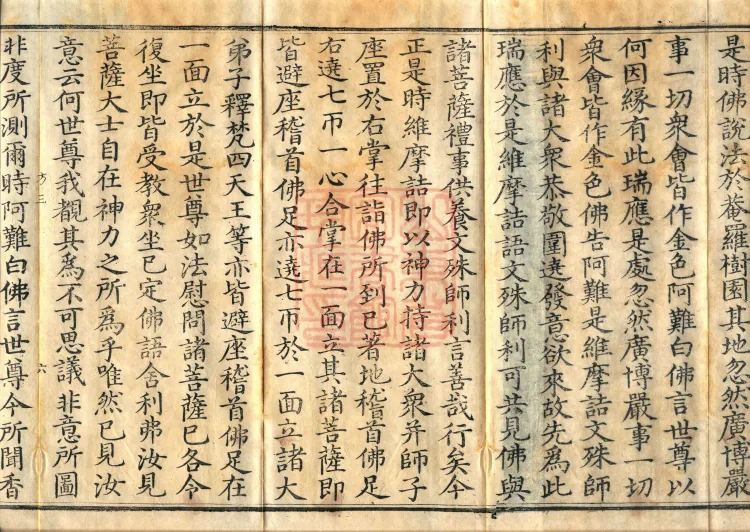 是時佛說法於菴羅樹園其地忽然廣博嚴
事一切衆會皆作金色阿難白佛言世尊以
何因緣有此瑞應是處忽然廣博嚴事一切
衆會皆作金色佛告阿難是維摩詰文殊師
利與諸大衆恭敬圍遶發意欲來故先爲此
瑞應於是維摩詰語文殊師利可共見佛與
諸菩薩禮事供養文殊師利言善哉行矣今
正是時維摩詰即以神力持諸大衆并師子
座置於右掌往詣佛所到已著地稽首佛足
右遶七帀一心合掌在一面立其諸菩薩即
皆避座稽首佛足亦遶七帀於一面立諸大
弟子釋梵四天王等亦皆避座稽首佛足在
一面立於是世尊如法慰問諸菩薩已各令
復坐即皆受教衆坐已定佛語舍利弗汝見
菩薩大士自在神力之所爲乎唯然已見汝
意云何世尊我覩其爲不可思議非意所圖
方三 六
非度所測爾時阿難白佛言世尊今所聞香